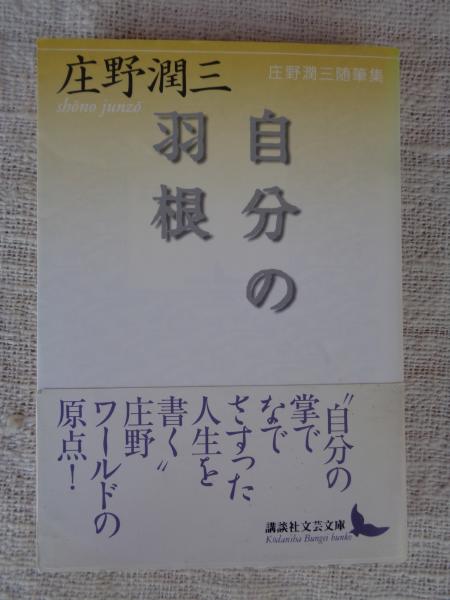 庄野潤三
shōno junzō
庄野潤三随筆集
自分の
羽根
〝自分の
掌で
なで
さすった
人生を
書く〟
庄野
ワールドの
原点！
講談社文芸文庫
Kōdansha Bungei bunko